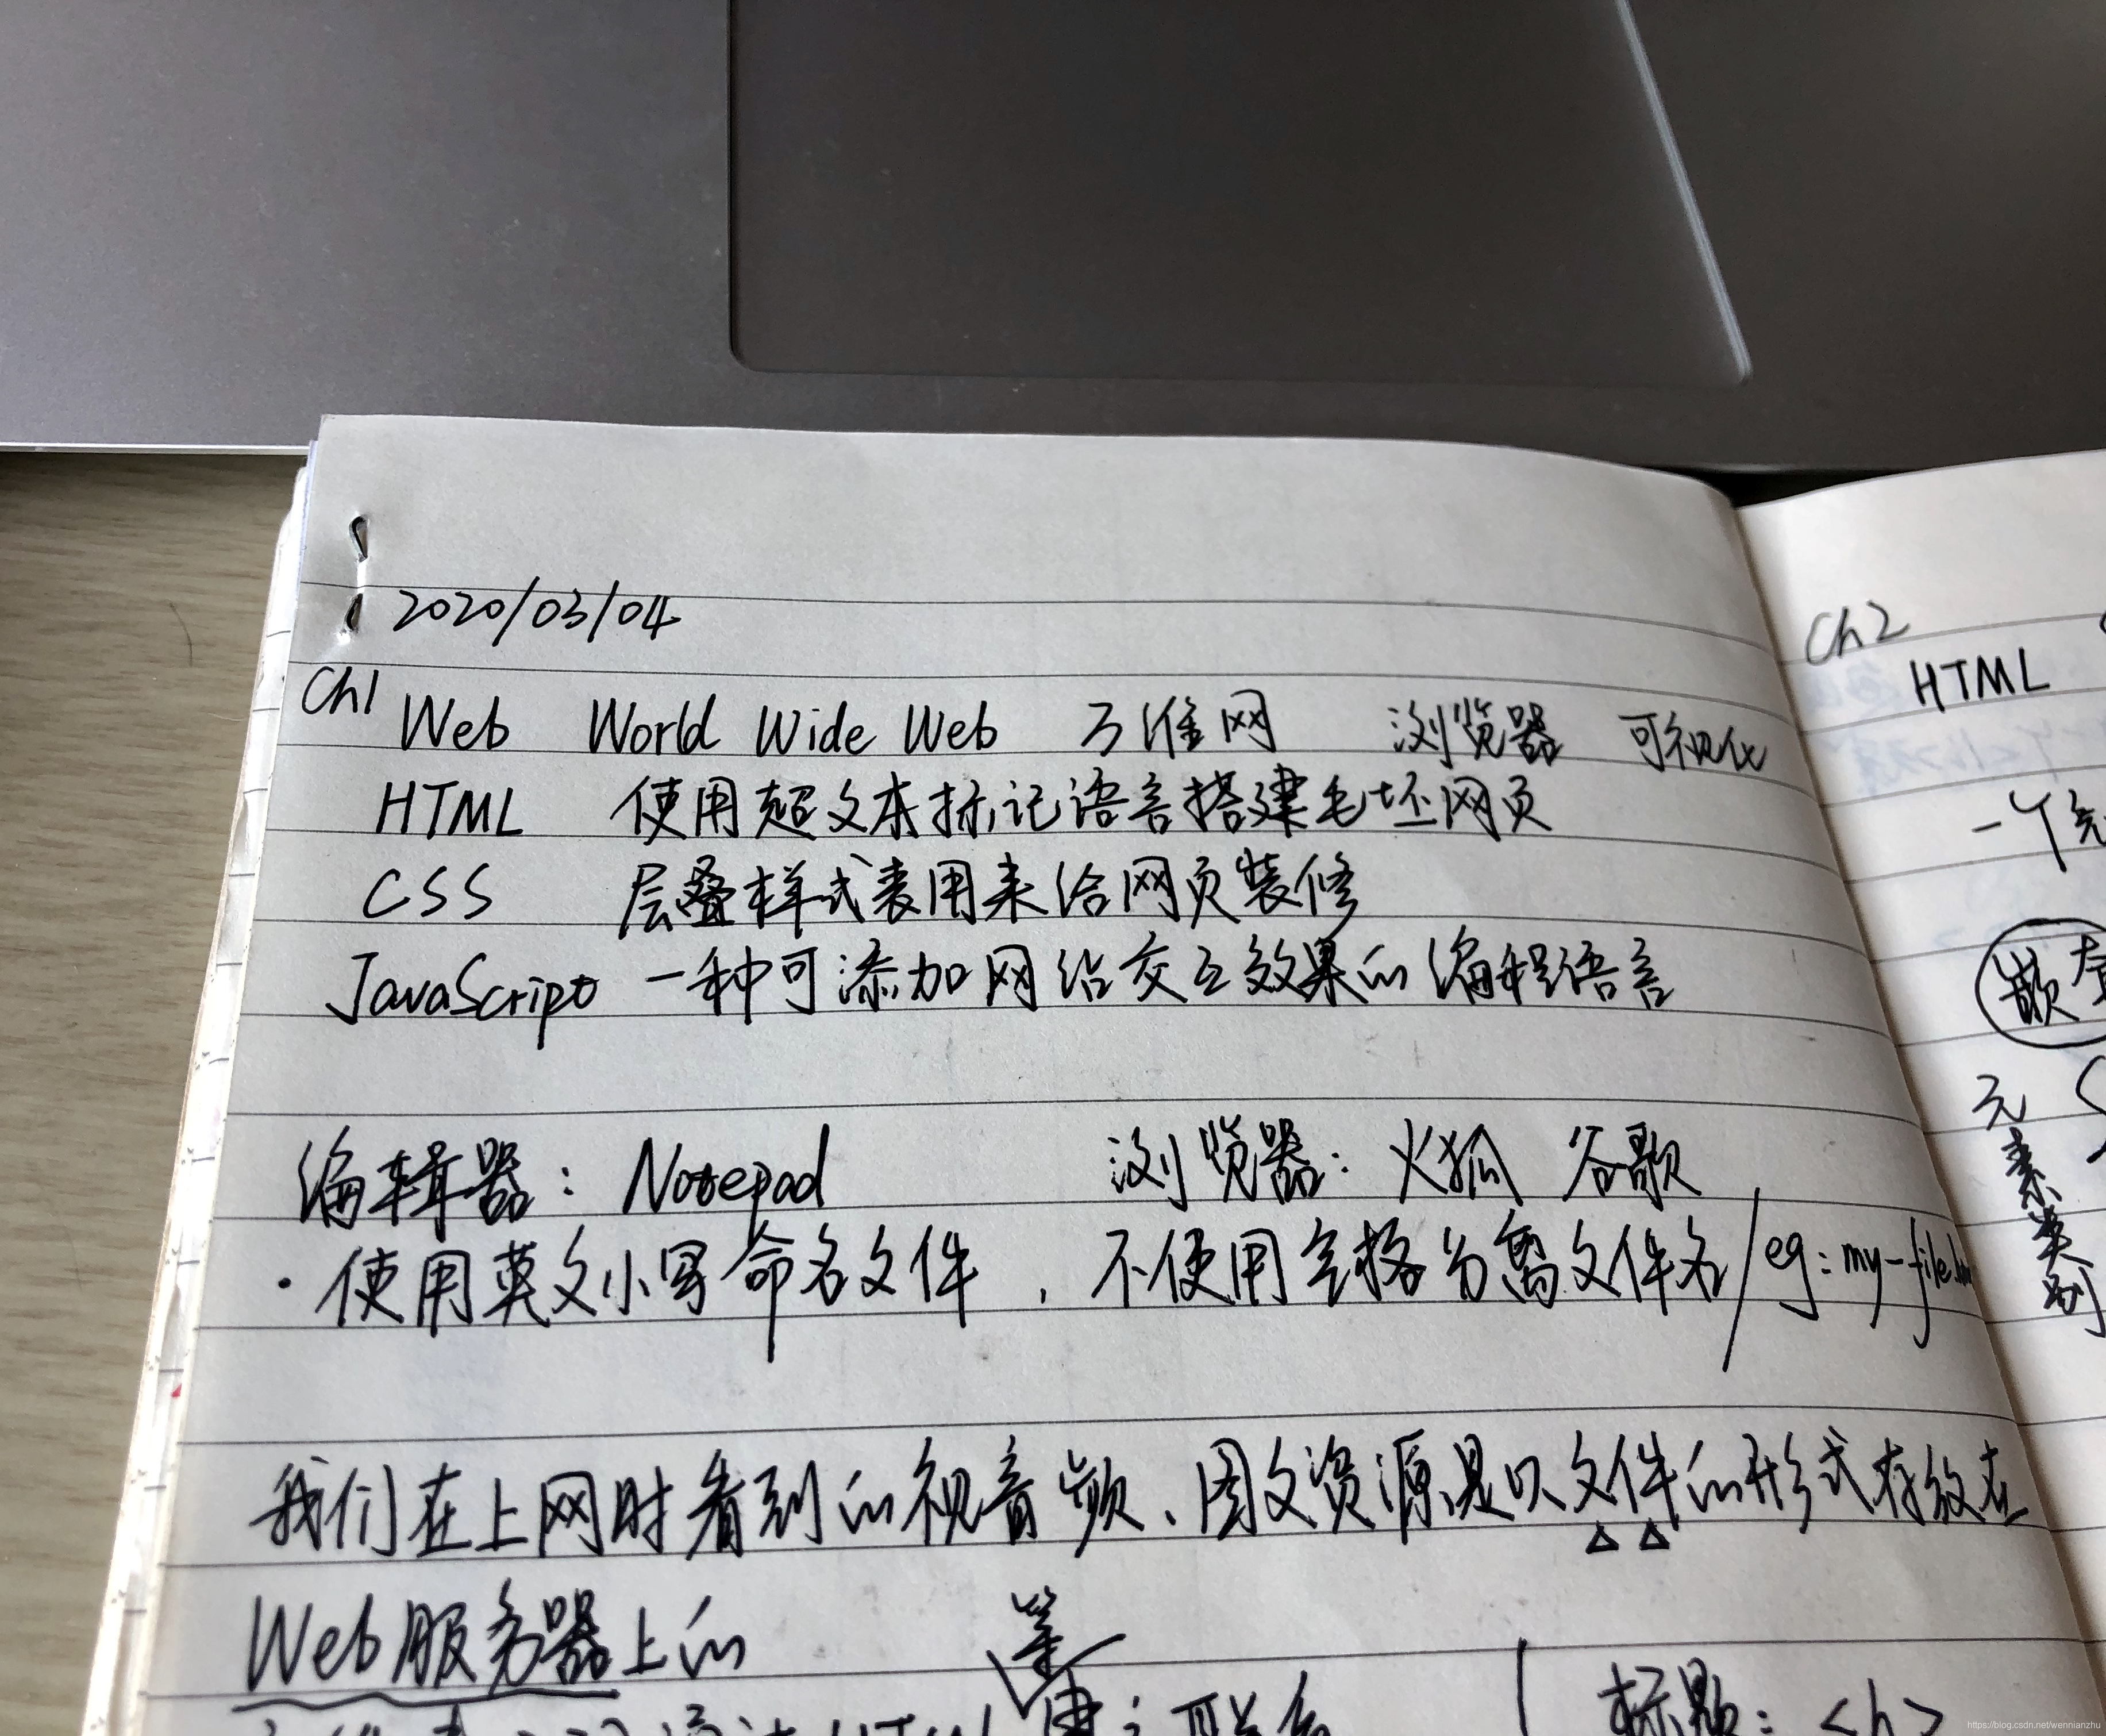 2020/03/04
Ch1
Web World Wide Web 万维网 浏览器 可视化
HTML 使用超文本标记语言搭建毛坯网页
CSS 层叠样式表用来给网页装修
JavaScript 一种可添加网站交互效果的编程语言
编辑器：Notepad 浏览器：火狐 谷歌
·使用英文小写命名文件，不使用空格分离文件名/eg：my-file
我们在上网时看到的视音频、图文资源是以文件的形式存放在
Web服务器上的
标题：<h>
Ch2
HTML
一个元
嵌套
元素类别
https://blog.csdn.net/wennianzhu